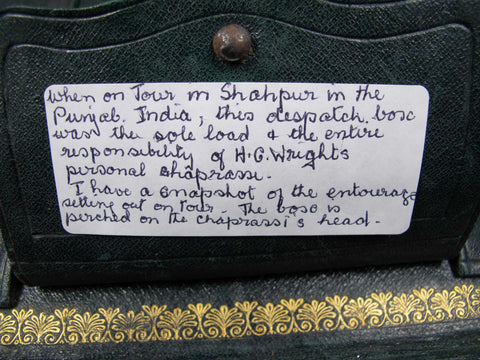 when on Tour in Shahpur in the
Punjab. India, this despatch box
was the sole load & the entire
responsibility of H.C.Wrights
personal shaprassi.
I have a snapshot of the entourage
setting out on tour. The box is
perched on the chaprassi's head.